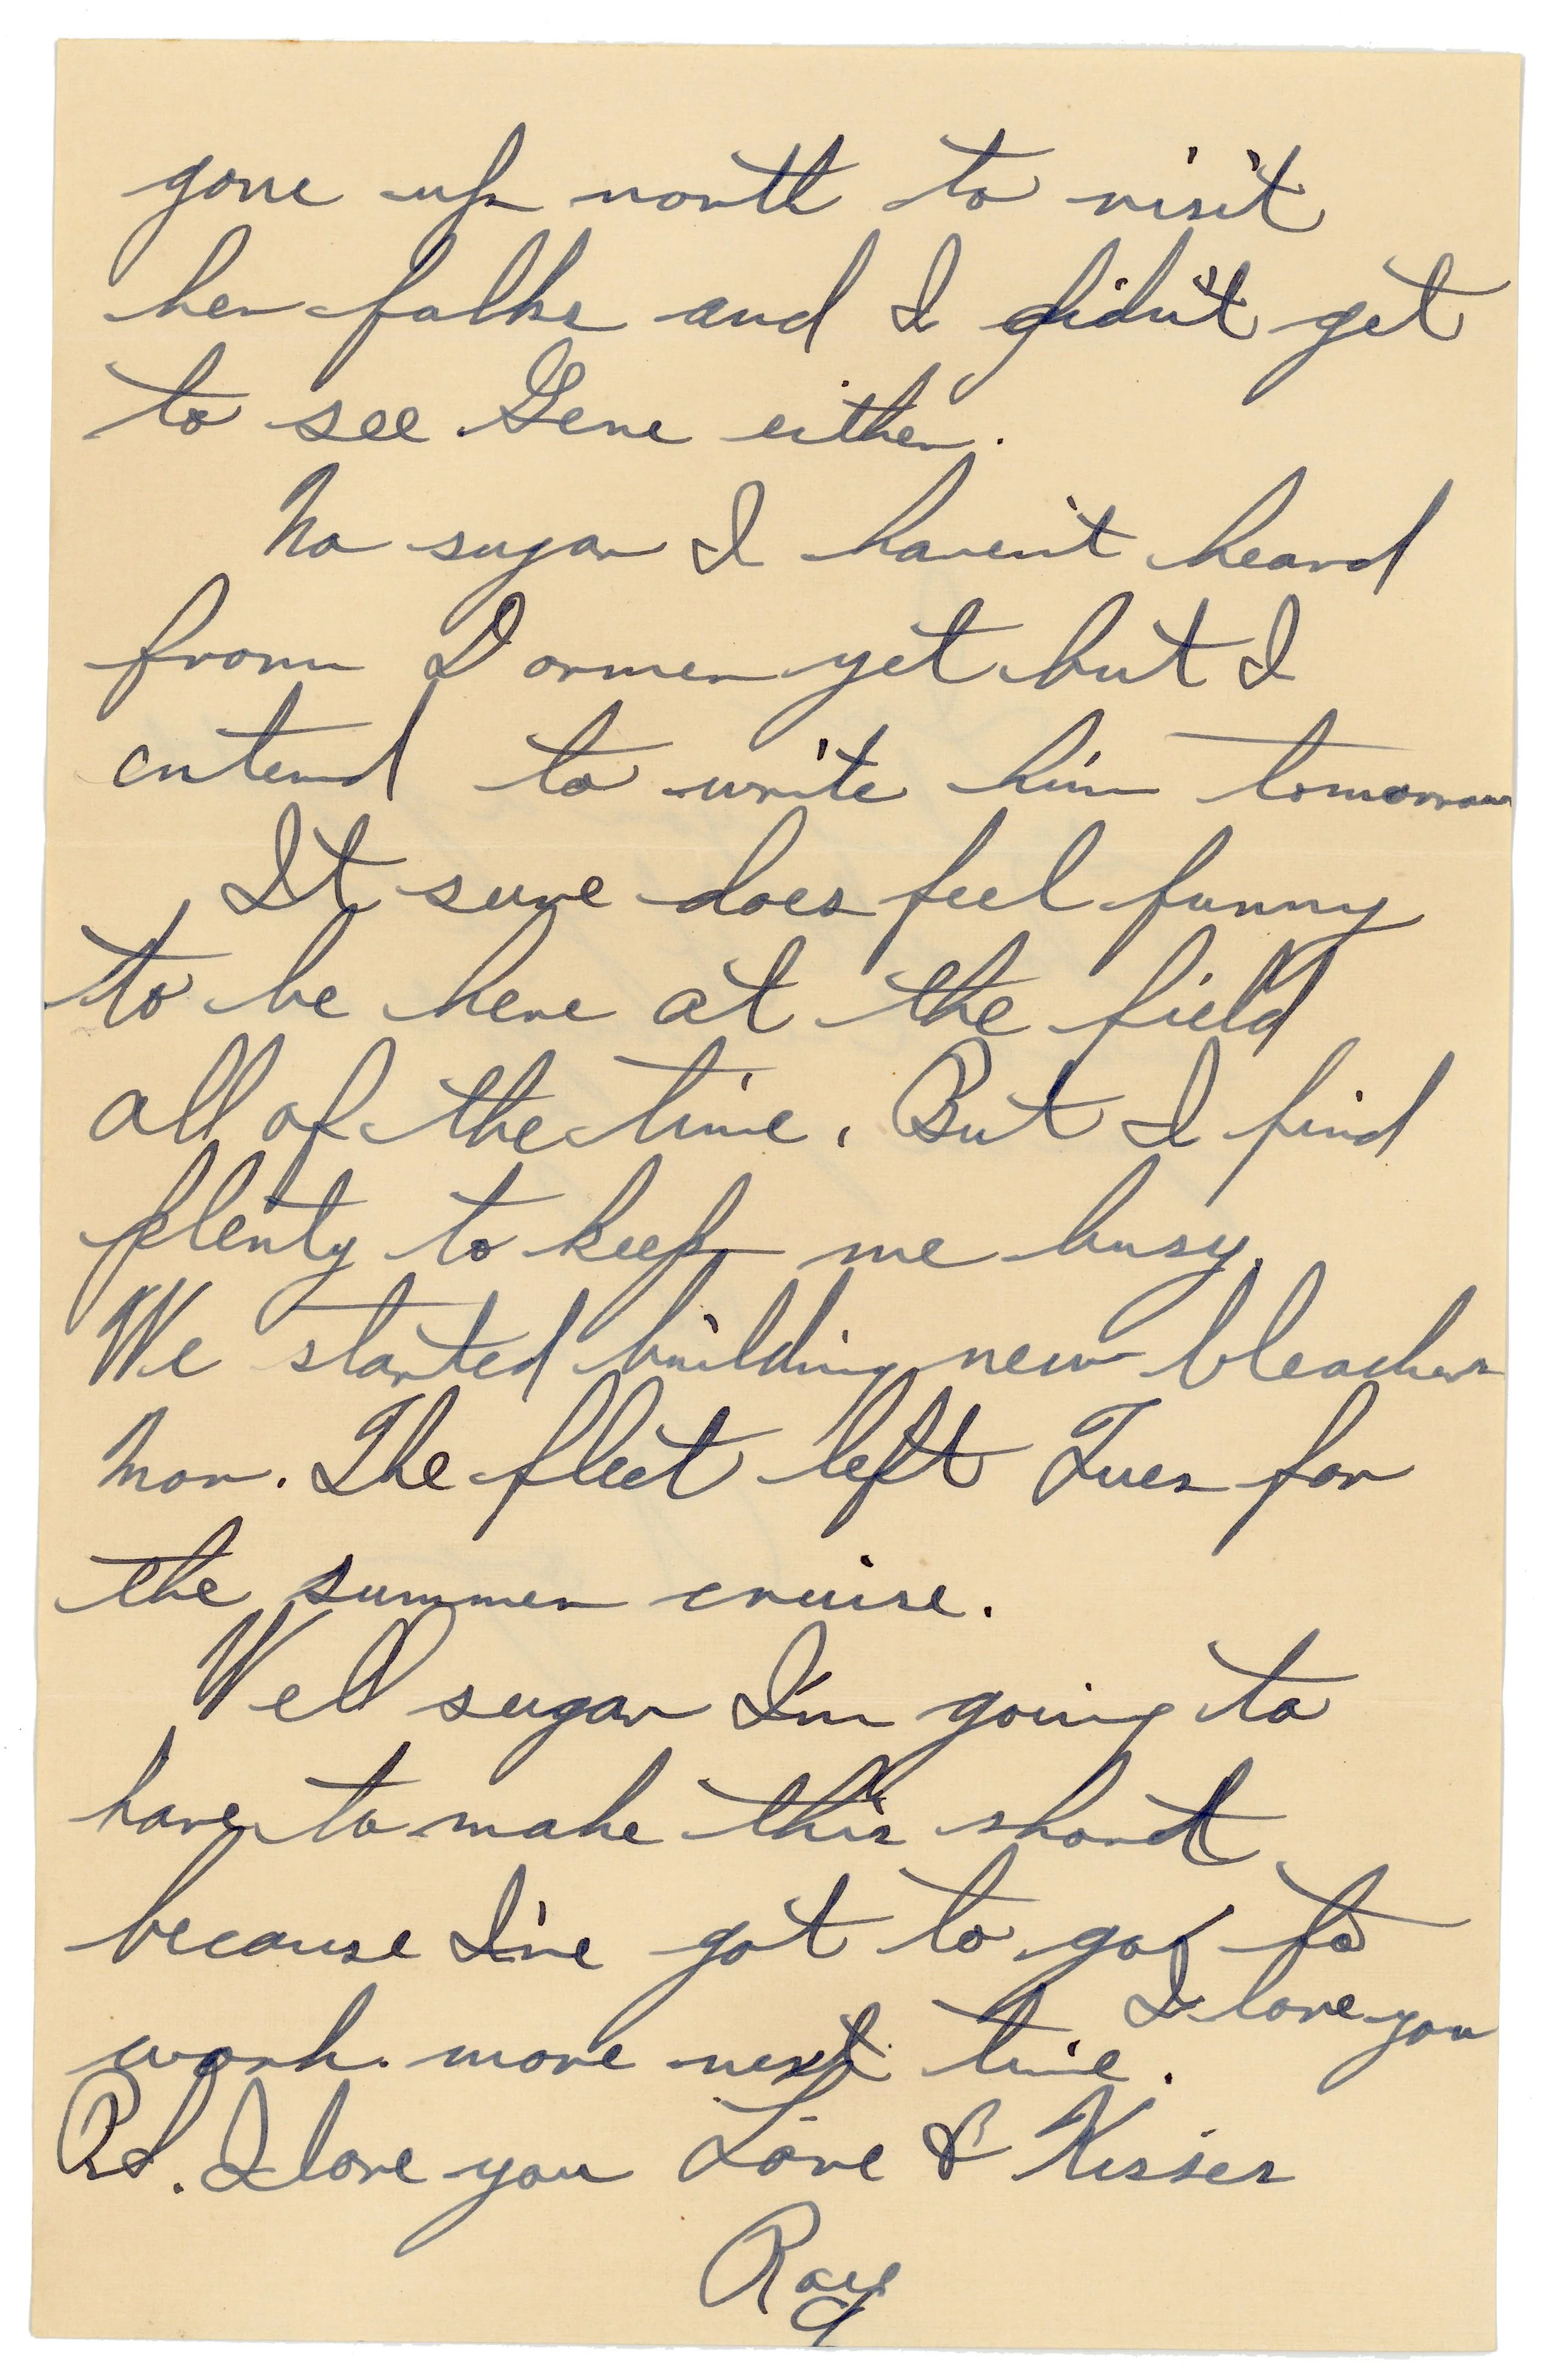 gone up north to visit
her folks and I didn't get
to see Gene either.
No sugar I haven't heard
from Dormer yet but I
entend to write him tomorrow
It sure does feel funny
to be here at the field
all of the time. But I find
plenty to keep me busy.
We started building new bleachers
Mon. The fleet left Tues for
the summer cruise.
Well sugar I'm going to
have to make this short
because I've got to go to
I love you
work. more next time.
P.S. I love you Love & Kisses
Ray